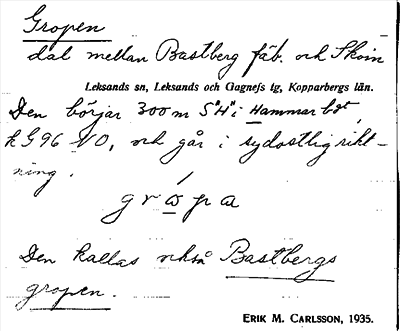 Gropen
dal mellan Bastberg fäb. och Skoin
Leksands sn, Leksands och Gagnefs tg, Kopparbergs län.
Den börjar 300 m S "H" i Hammar bot,
k G 96 NO, och går i sydostlig rikt-
ning.
grω̲pa
Den kallas också Bastbergs
gropen.
ERIK M. CARLSSON, 1935.